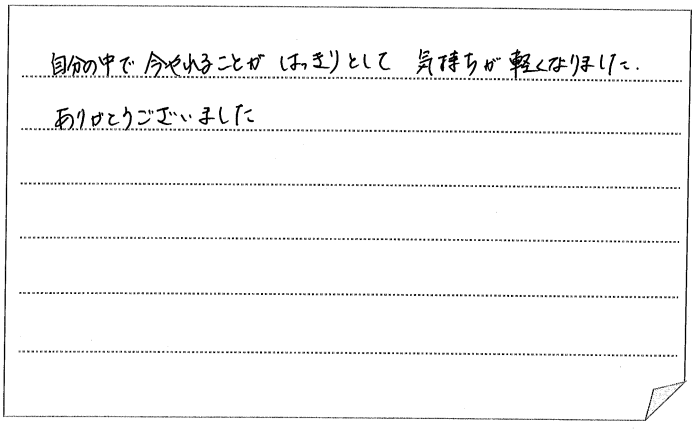 自分の中で 今やれることが はっきりとして 気持ちが 軽くなりました.
ありがとうございました